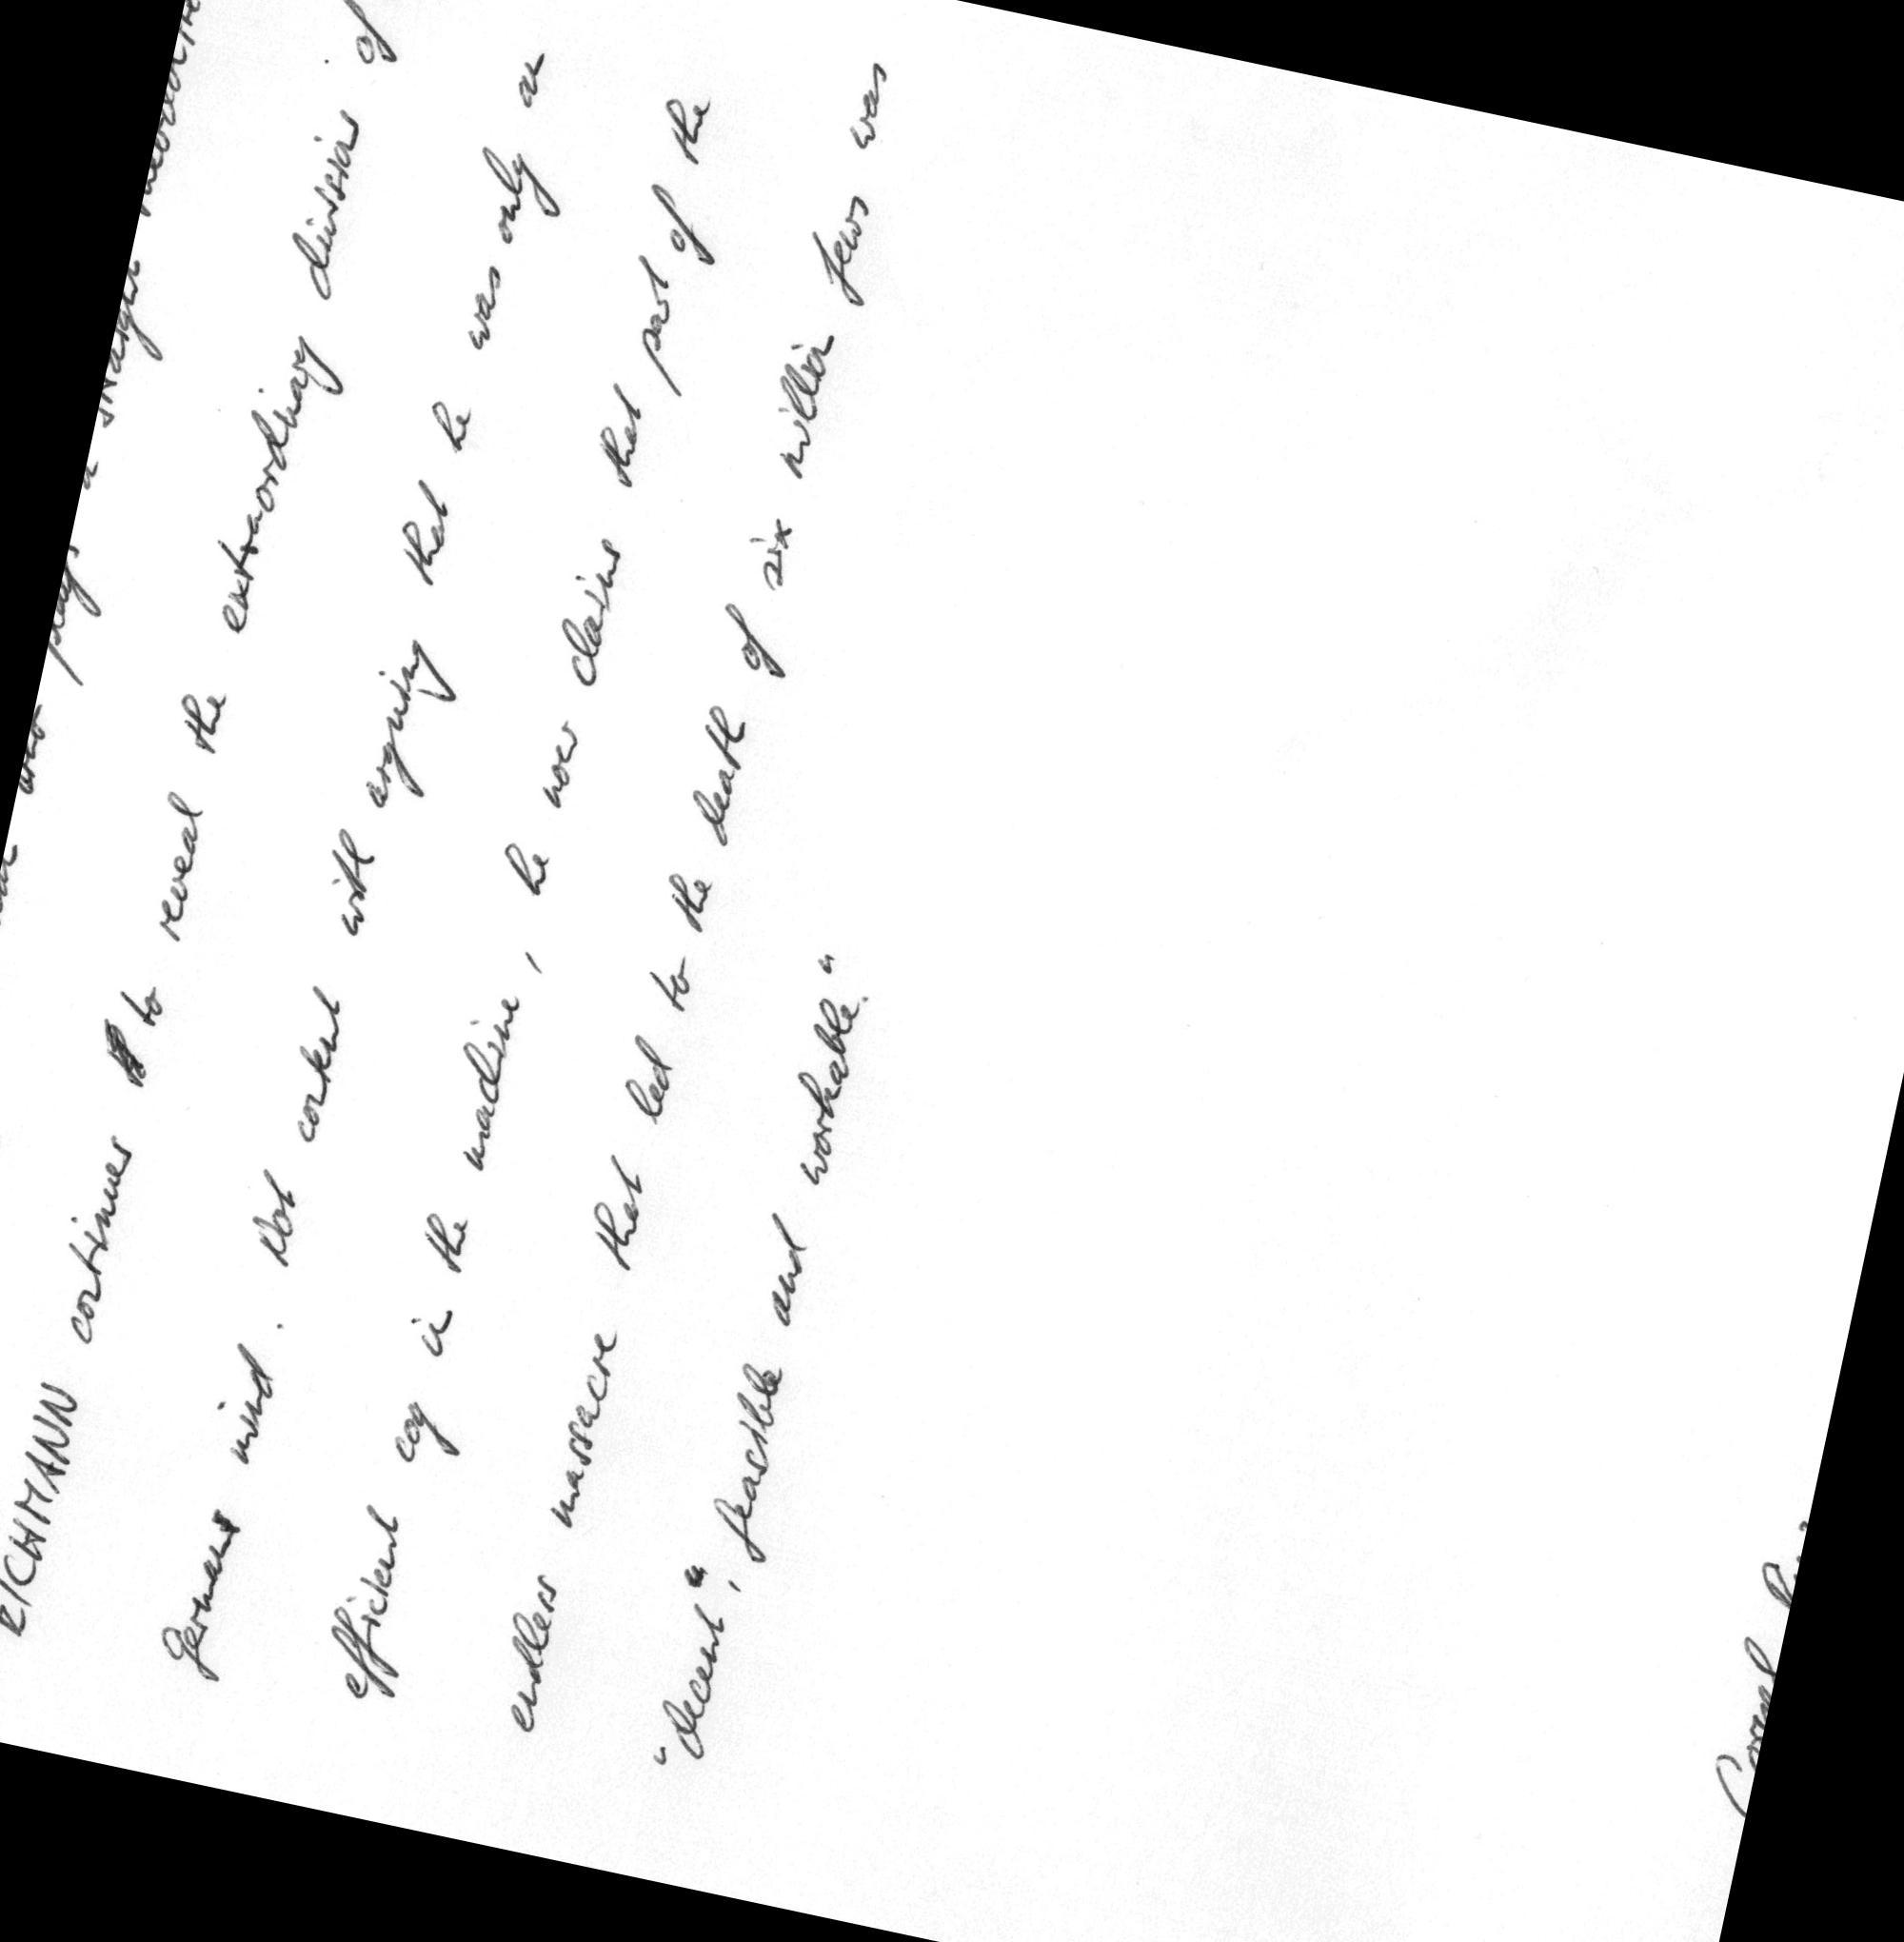 plays a straight
EICHMANN continues to reveal the extraordinary division of
German mind. Not content with arguing that he was only an
efficient cog in the machine, he now claims that part of the
endless massacre that led to the death of six million Jews was
"decent", feasible and workable."